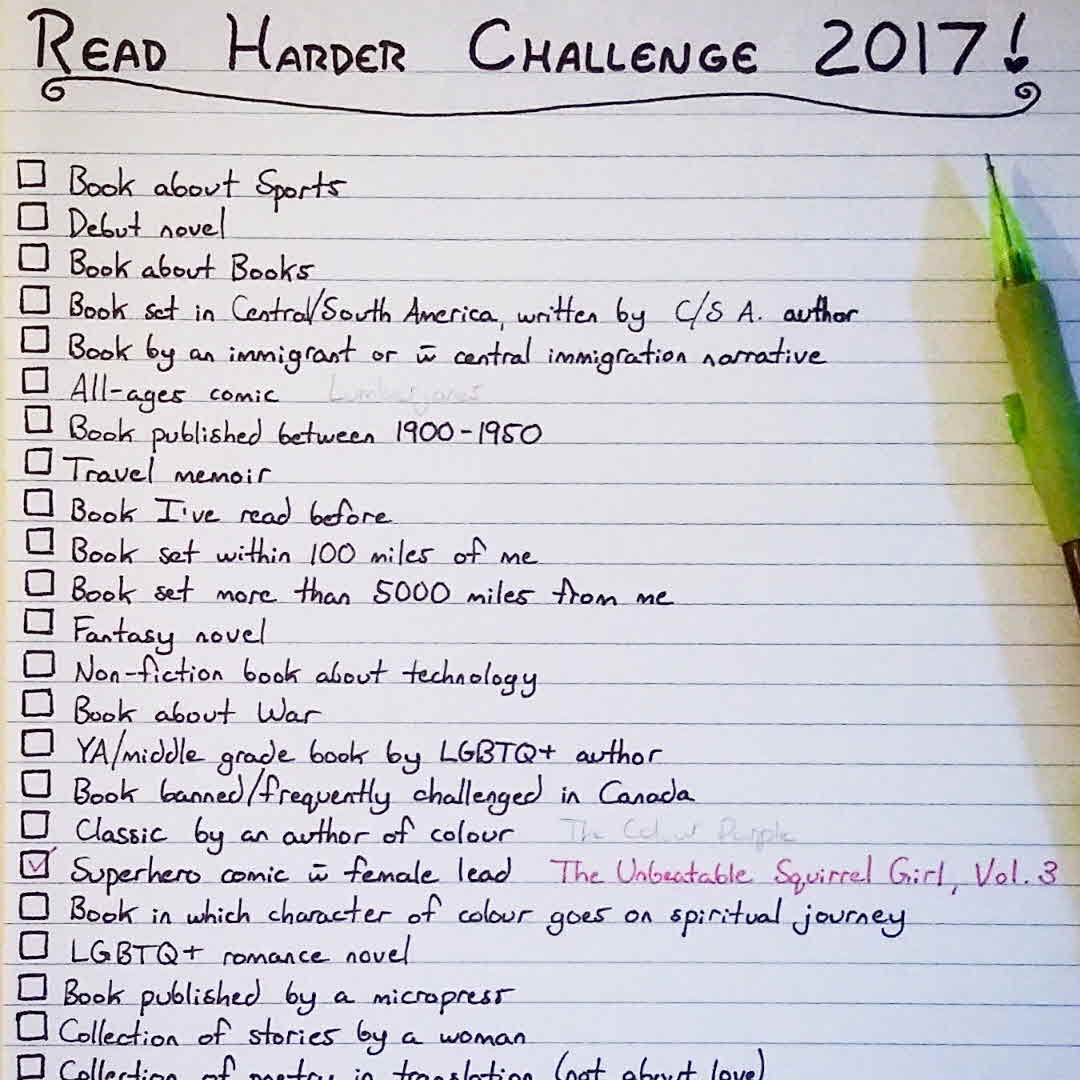 READ HARDER CHALLENGE 2017!
Book about Sports
Debut novel
Book about Books
Book set in Central/South America, written by C/S A. author
Book by an immigrant or w̄ central immigration narrative
All-ages comic Lumberjanes
Book published between 1900-1950
Travel memoir
Book I've read before
Book set within 100 miles of me
Book set more than 5000 miles from me
Fantasy novel
Non-fiction book about technology
Book about War
YA/middle grade book by LGBTQ+ author
Book banned/frequently challenged in Canada
Classic by an author of colour The Colour Purple
Superhero comic w̄ female lead The Unbeatable Squirrel Girl, Vol. 3
Book in which character of colour goes on spiritual journey
LGBTQ+ romance novel
Book published by a micropress
Collection of stories by a woman
Collection of poetry in translation (not about love)